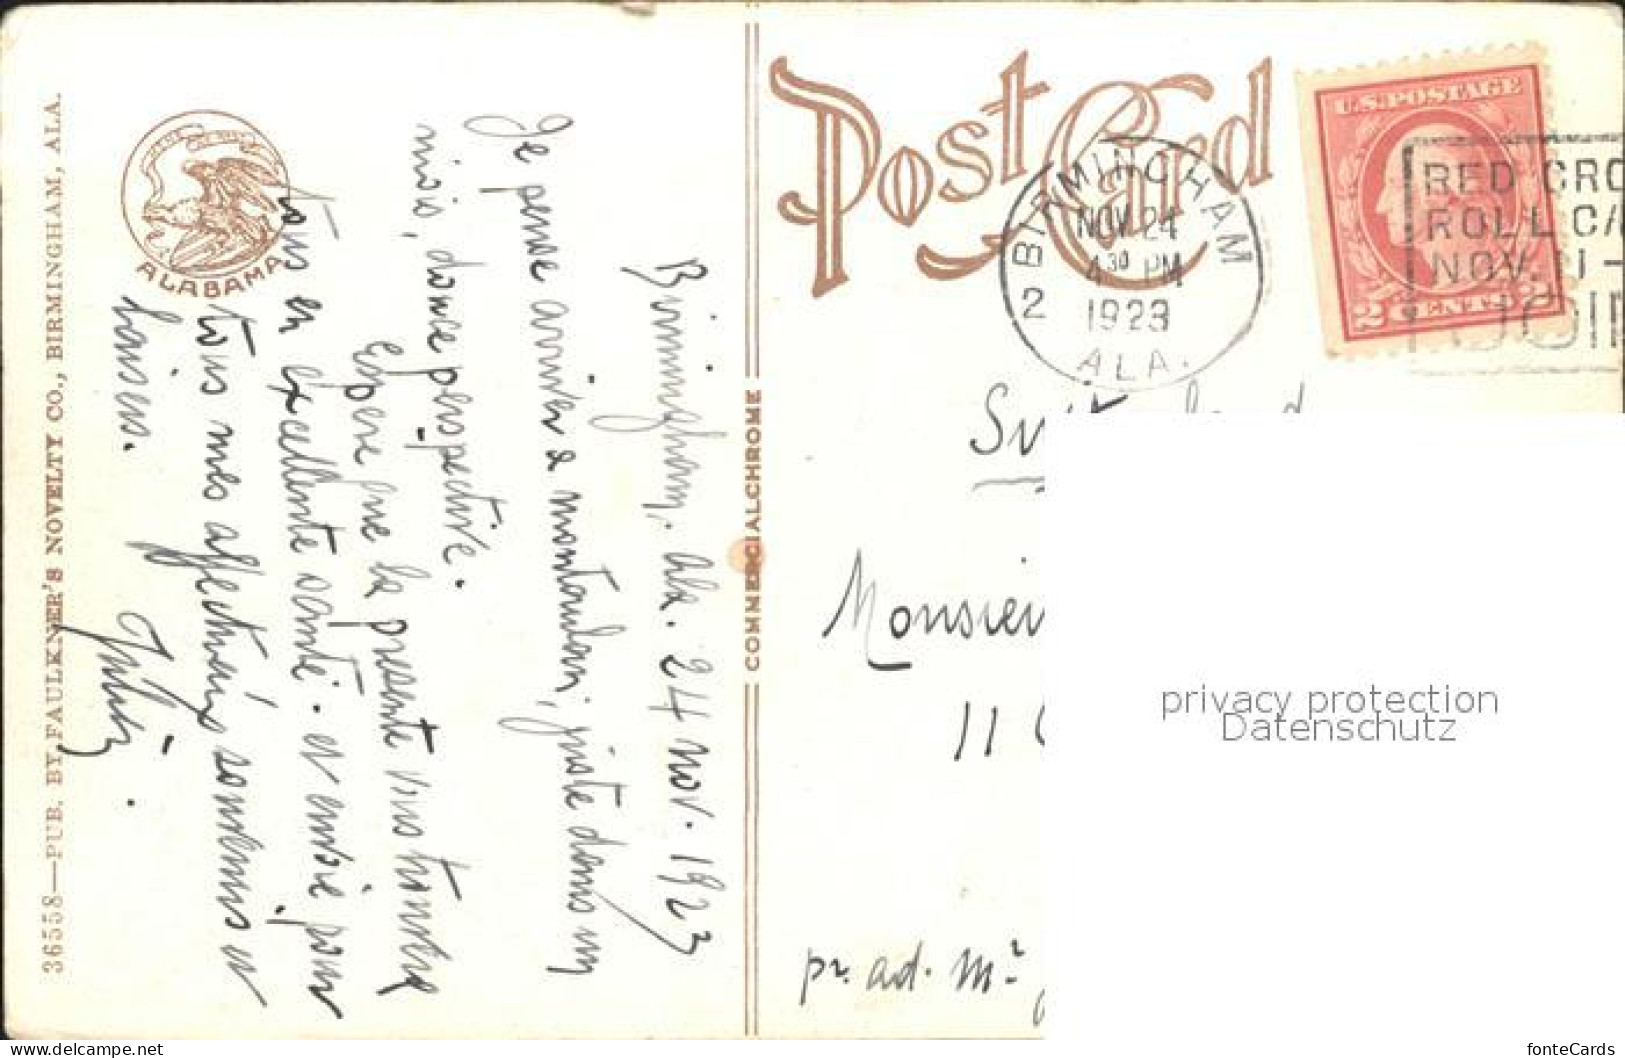 36558—PUB. BY FAULKNER'S NOVELTY CO., BIRMINGHAM, ALA.
ALABAMA
Birmingham, Ala. 24 nov. 1923
Je pense arriver à montauban, juste dans un
mois, douce perspective.
Espère que la présente vous trouvera
tous en excellente santé. et envoie pour
tous mes affectueux souvenirs et
baisers.
COMMERCIALCHROME
Post Card
BIRMINGHAM
2
NOV 24
4 30 PM
1923
ALA.
U.S. POSTAGE
2 CENTS 2
RED CRO
ROLL CA
NOV. 11 -
JOIN
Monsieu
11
pr. ad. Mr
privacy protection
Datenschutz
https://www.ansichtskarten-center.de/
fonteCards